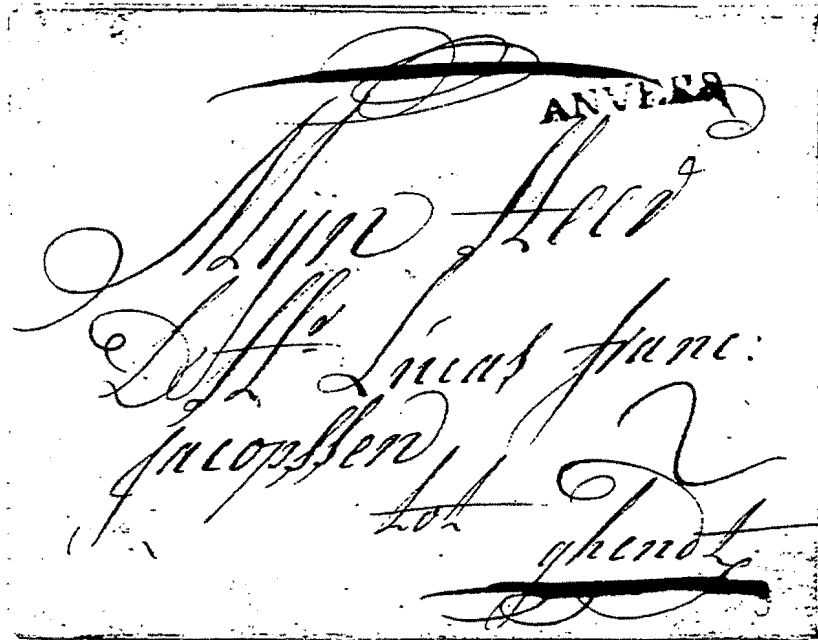 ANVERS
Mijn Heer
De Hr Lucas franc:
Jacopssen
tot
ghendt